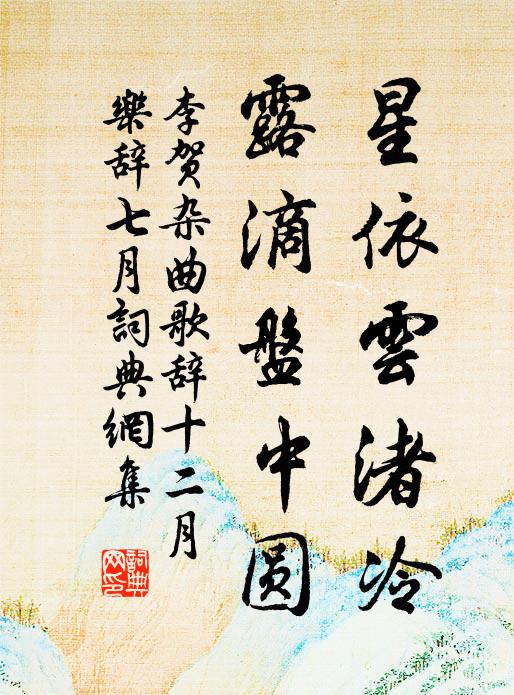 星依雲渚冷
露滴盤中圓
李贺杂曲歌辞十二月
樂辞七月詞典網集
詞典
网印